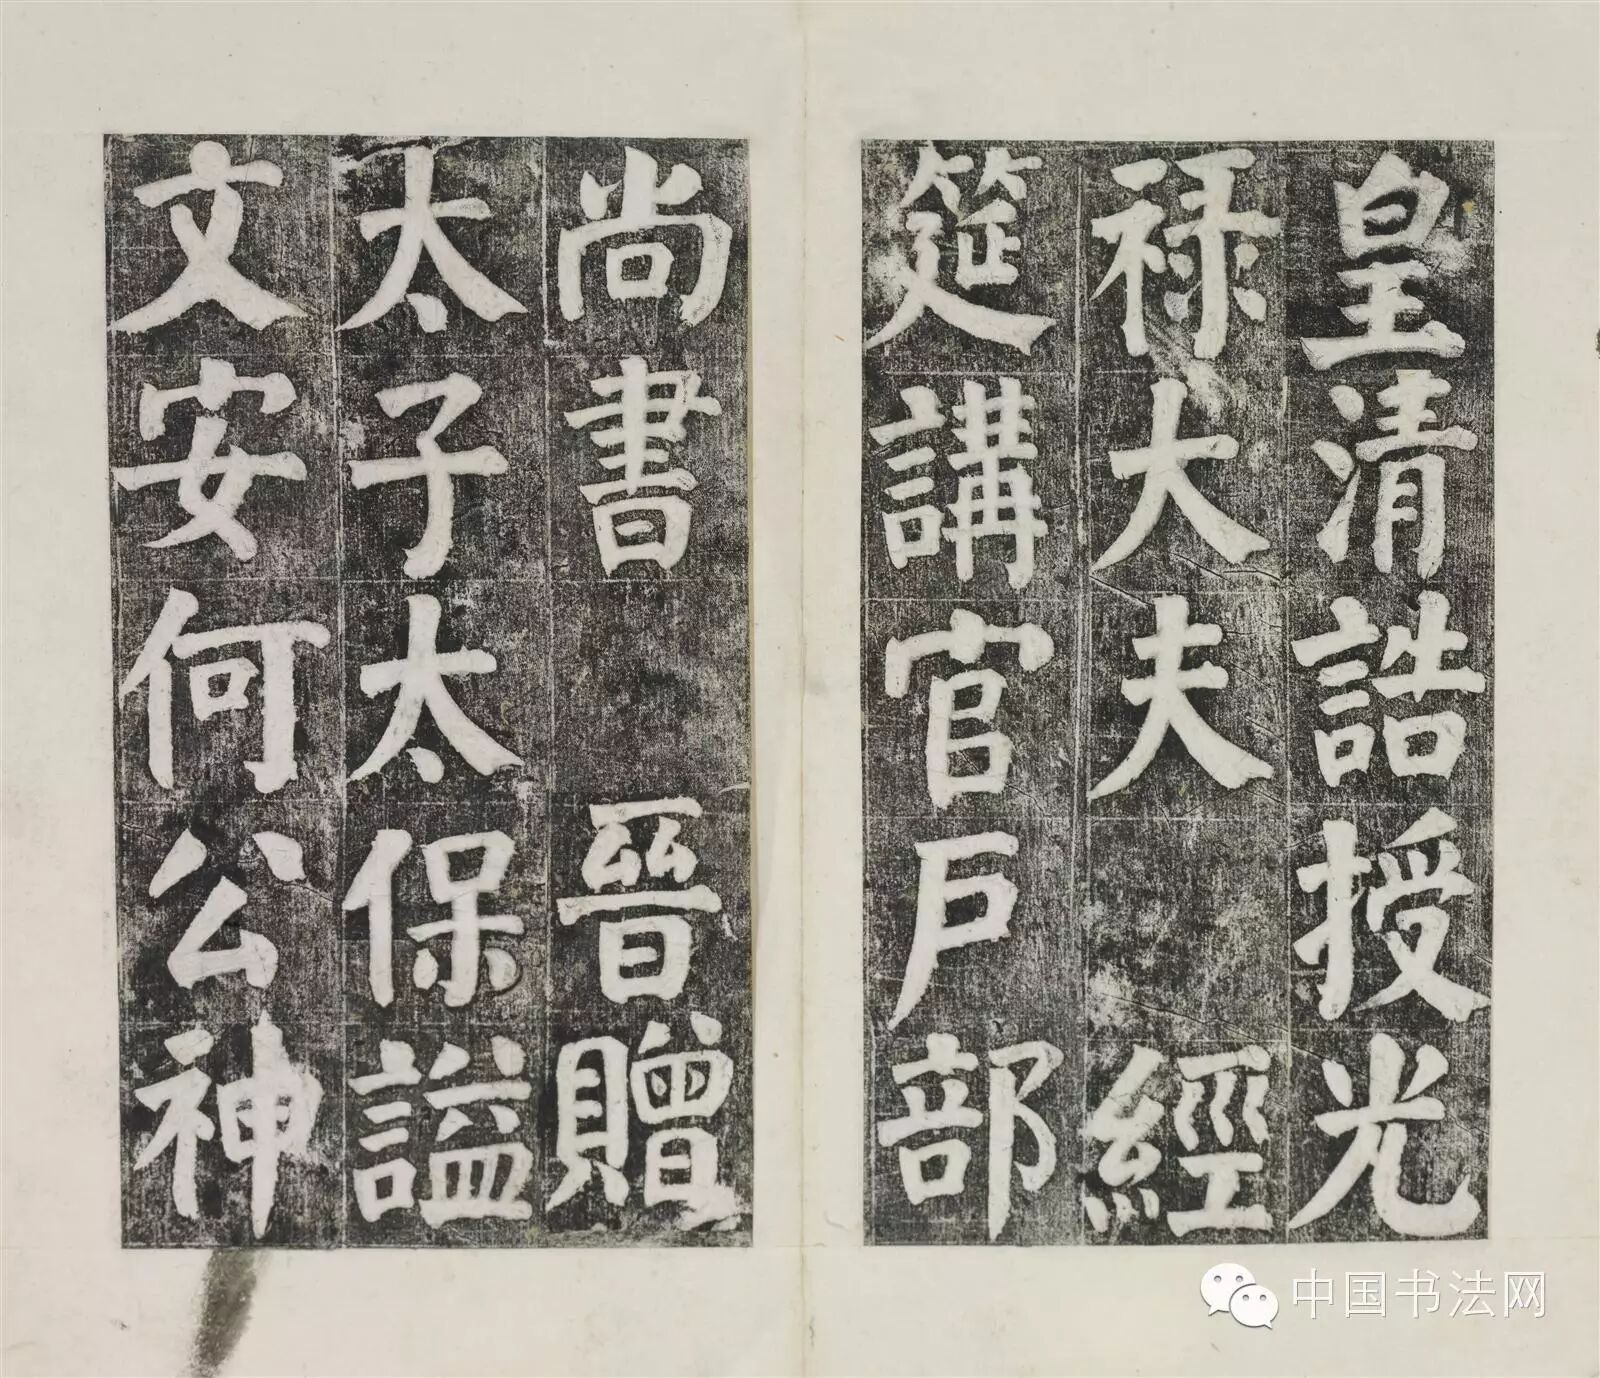 皇清誥授光
祿大夫 經
筵講官戶部
尚書 晉贈
太子太保謚
文安何公神
中国书法网